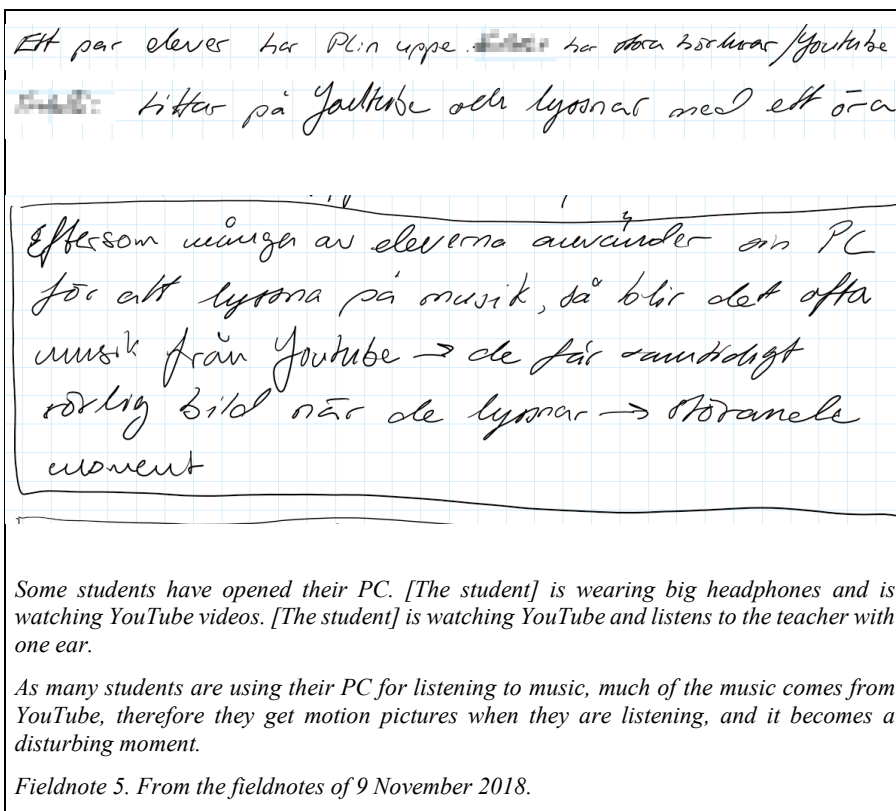 Ett par elever har PCin uppe. har stora hörlurar/Youtube
tittar på Youtube och lyssnar med ett öra
Eftersom många av eleverna använder sin PC
för att lyssna på musik, så blir det ofta
musik från Youtube → de får samtidigt
rörlig bild när de lyssnar → störande
moment
Some students have opened their PC. [The student] is wearing big headphones and is
watching YouTube videos. [The student] is watching YouTube and listens to the teacher with
one ear.
As many students are using their PC for listening to music, much of the music comes from
YouTube, therefore they get motion pictures when they are listening, and it becomes a
disturbing moment.
Fieldnote 5. From the fieldnotes of 9 November 2018.